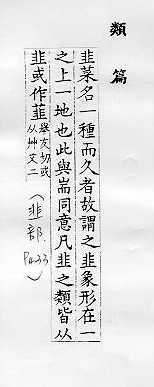 類篇
韭菜名一種而久者故謂之韭象形在一
之上一地也此與耑同意凡韭之類皆从
韭或作韮
舉友切或
从艸文二
(韭部.